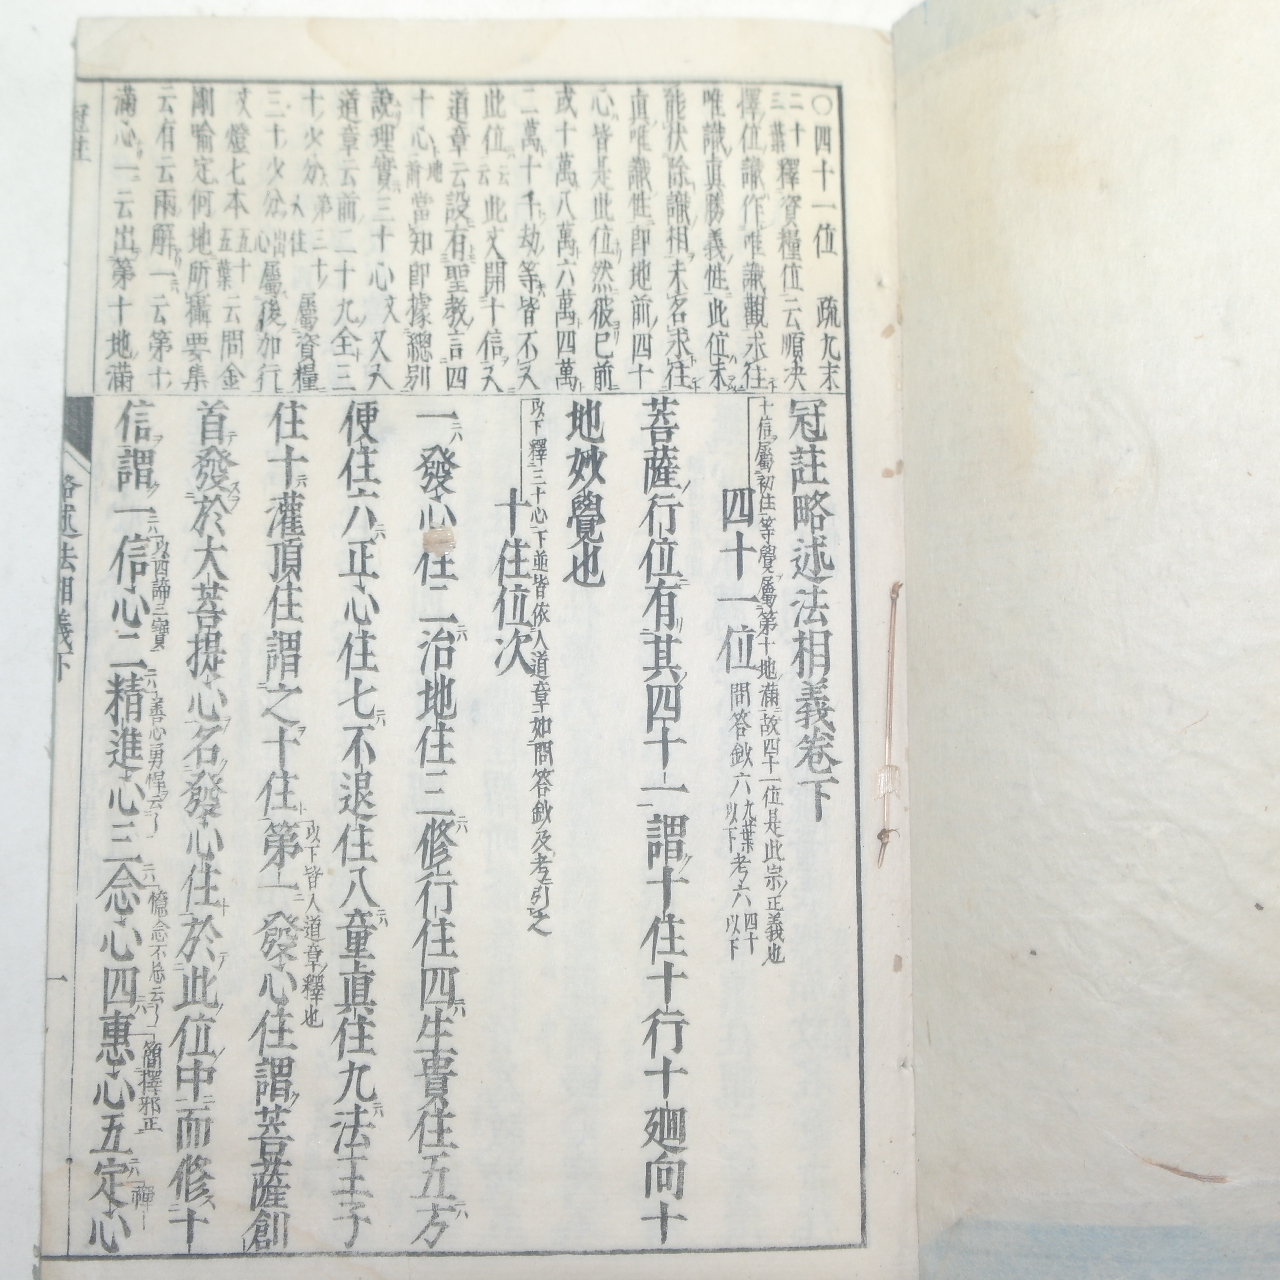 〇四十一位　疏九末
二十釋資糧位云順決
三葉
擇位識作唯識觀求住
唯識真勝義性此位未
能伏除識相未名求住
真唯識性即地前四十
心皆是此位然彼已前
或十萬八萬六萬四萬
二萬十千劫等皆不入
此位云云此文開十信又
道章云設有聖教言四
十心地前當知即據總別
說理實三十心文又又
道章云前二十九全三
十少分第三十屬資糧
三十少分入住出心屬後加行
文燈七本五十五葉云問金
剛喻定何地所攝要集
云有云兩解一云第十
滿心一云出第十地滿
冠註略述法相義卷下
十信屬初住等覺屬第十地滿故四十一位是此宗正義也
四十一位
問答鈔六九葉以下考六四十以下
菩薩行位有其四十一謂十住十行十廻向十
地妙覺也
以下釋三十心下並皆依人道章如問答鈔及考引之
十住位次
一發心住二治地住三修行住四生貴住五方
便住六正心住七不退住八童真住九法王子
住十灌頂住謂之十住第一發心住謂菩薩創
以下皆人道章釋也
首發於大菩提心名發心住於此位中而修十
信謂一信心二精進心三念心四惠心五定心
以四諦三寶
善心勇悍云云
憶念不忘云云
簡擇邪正
略述法相義下
一